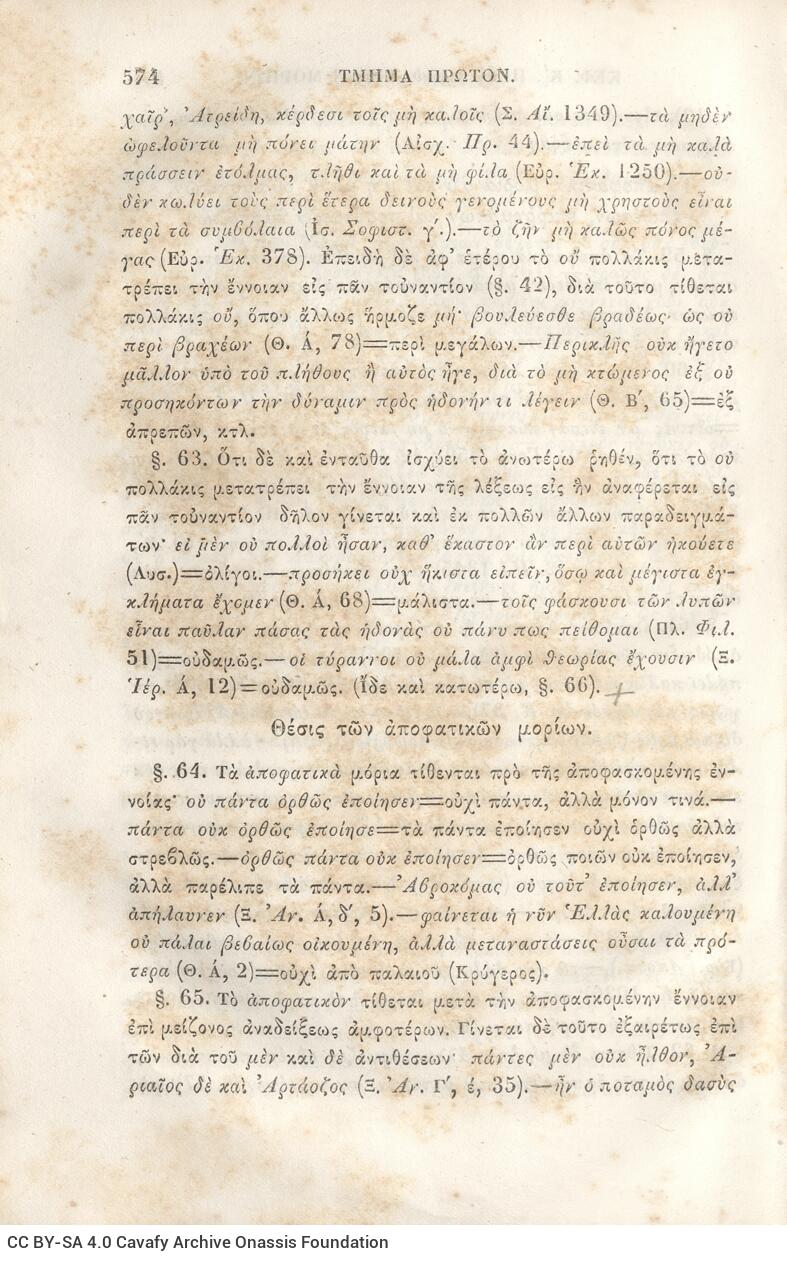 574 ΤΜΗΜΑ ΠΡΩΤΟΝ.
χαῖρ', Ἀτρείδη, κέρδεσι τοῖς μὴ καλοῖς (Σ. Αἴ. 1349).—τὰ μηδὲν
ὠφελοῦντα μὴ πόνει μάτην (Αἰσχ. Πρ. 44).—ἐπεὶ τὰ μὴ καλὰ
πράσσειν ἐτόλμας, τλῆθι καὶ τὰ μὴ φίλα (Εὐρ. Ἑκ. 1250).—οὐ-
δὲν κωλύει τοὺς περὶ ἕτερα δεινοὺς γενομένους μὴ χρηστοὺς εἶναι
περὶ τὰ συμβόλαια (Ἰσ. Σοφιστ. γ'.).—τὸ ζῆν μὴ καλῶς πόνος μέ-
γας (Εὐρ. Ἑκ. 378). Ἐπειδὴ δὲ ἀφ' ἑτέρου τὸ οὔ πολλάκις μετα-
τρέπει τὴν ἔννοιαν εἰς πᾶν τοὐναντίον (§. 42), διὰ τοῦτο τίθεται
πολλάκις οὔ, ὅπου ἄλλως ἥρμοζε μή· βουλεύεσθε βραδέως· ὡς οὐ
περὶ βραχέων (Θ. Ά, 78)=περὶ μεγάλων.—Περικλῆς οὐκ ἤγετο
μᾶλλον ὑπὸ τοῦ πλήθους ἢ αὐτὸς ἦγε, διὰ τὸ μὴ κτώμενος ἐξ οὐ
προσηκόντων τὴν δύναμιν πρὸς ἡδονήν τι λέγειν (Θ. Β', 65)=ἐξ
ἀπρεπῶν, κτλ.
§. 63. Ὅτι δὲ καὶ ἐνταῦθα ἰσχύει τὸ ἀνωτέρω ῥηθέν, ὅτι τὸ οὐ
πολλάκις μετατρέπει τὴν ἔννοιαν τῆς λέξεως εἰς ἣν ἀναφέρεται εἰς
πᾶν τοὐναντίον δῆλον γίνεται καὶ ἐκ πολλῶν ἄλλων παραδειγμά-
των· εἰ μὲν οὐ πολλοὶ ἦσαν, καθ' ἕκαστον ἂν περὶ αὐτῶν ἠκούετε
(Λυσ.)=ὀλίγοι.—προσήκει οὐχ ἥκιστα εἰπεῖν, ὅσῳ καὶ μέγιστα ἐγ-
κλήματα ἔχομεν (Θ. Ά, 68)=μάλιστα.—τοῖς φάσκουσι τῶν λυπῶν
εἶναι παῦλαν πάσας τὰς ἡδονὰς οὐ πάνυ πως πείθομαι (Πλ. Φιλ.
51)=οὐδαμῶς.—οἱ τύραννοι οὐ μάλα ἀμφὶ θεωρίας ἔχουσιν (Ξ.
Ἱέρ. Ά, 12)=οὐδαμῶς. (Ἴδε καὶ κατωτέρω, §. 66).
Θέσις τῶν ἀποφατικῶν μορίων.
§. 64. Τὰ ἀποφατικὰ μόρια τίθενται πρὸ τῆς ἀποφασκομένης ἐν-
νοίας· οὐ πάντα ὀρθῶς ἐποίησεν=οὐχὶ πάντα, ἀλλὰ μόνον τινά.—
πάντα οὐκ ὀρθῶς ἐποίησε=τὰ πάντα ἐποίησεν οὐχὶ ὀρθῶς ἀλλὰ
στρεβλῶς.—ὀρθῶς πάντα οὐκ ἐποίησεν=ὀρθῶς ποιῶν οὐκ ἐποίησεν,
ἀλλὰ παρέλιπε τὰ πάντα.—Ἀβροκόμας οὐ τοῦτ' ἐποίησεν, ἀλλ'
ἀπήλαυνεν (Ξ. Ἀν. Ά, δ', 5).—φαίνεται ἡ νῦν Ἑλλὰς καλουμένη
οὐ πάλαι βεβαίως οἰκουμένη, ἀλλὰ μεταναστάσεις οὖσαι τὰ πρό-
τερα (Θ. Ά, 2)=οὐχὶ ἀπὸ παλαιοῦ (Κρύγερος).
§. 65. Τὸ ἀποφατικὸν τίθεται μετὰ τὴν ἀποφασκομένην ἔννοιαν
ἐπὶ μείζονος ἀναδείξεως ἀμφοτέρων. Γίνεται δὲ τοῦτο ἐξαιρέτως ἐπὶ
τῶν διὰ τοῦ μὲν καὶ δὲ ἀντιθέσεων· πάντες μὲν οὐκ ἦλθον, Ἀ-
ριαῖος δὲ καὶ Ἀρτάοζος (Ξ. Ἀν. Γ', έ, 35).—ἦν ὁ ποταμὸς δασὺς
CC BY-SA 4.0 Cavafy Archive Onassis Foundation